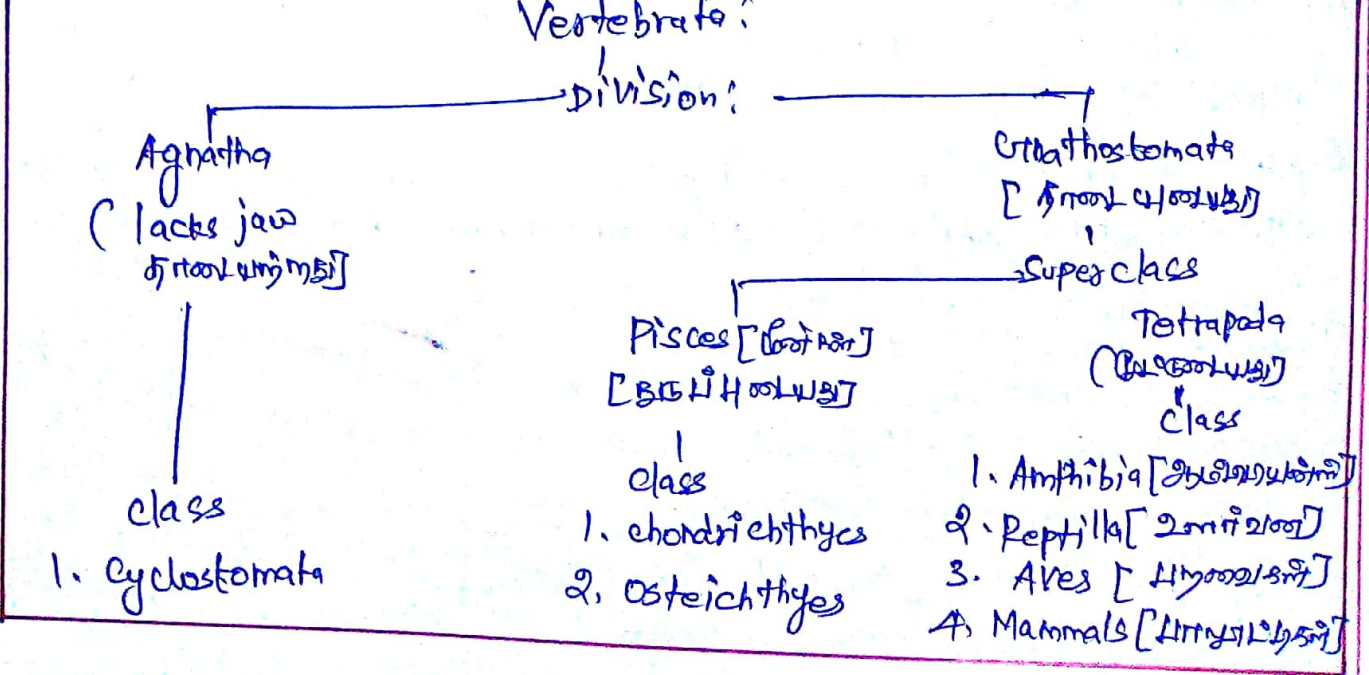 Vertebrata:
Division:
Agnatha
( lacks jaw
தாடையற்றது]
class
1. Cyclostomata
Gnathostomata
[ தாடையுடையது]
Superclass
Pisces [மீன்கள்]
[துடுப்புடையது]
class
1. chondrichthyes
2. Osteichthyes
Tetrapoda
class
1. Amphibia [
2. Reptilla [ ஊர்வன]
3. Aves [ பறவைகள்]
4. Mammals [பாலூட்டிகள்]